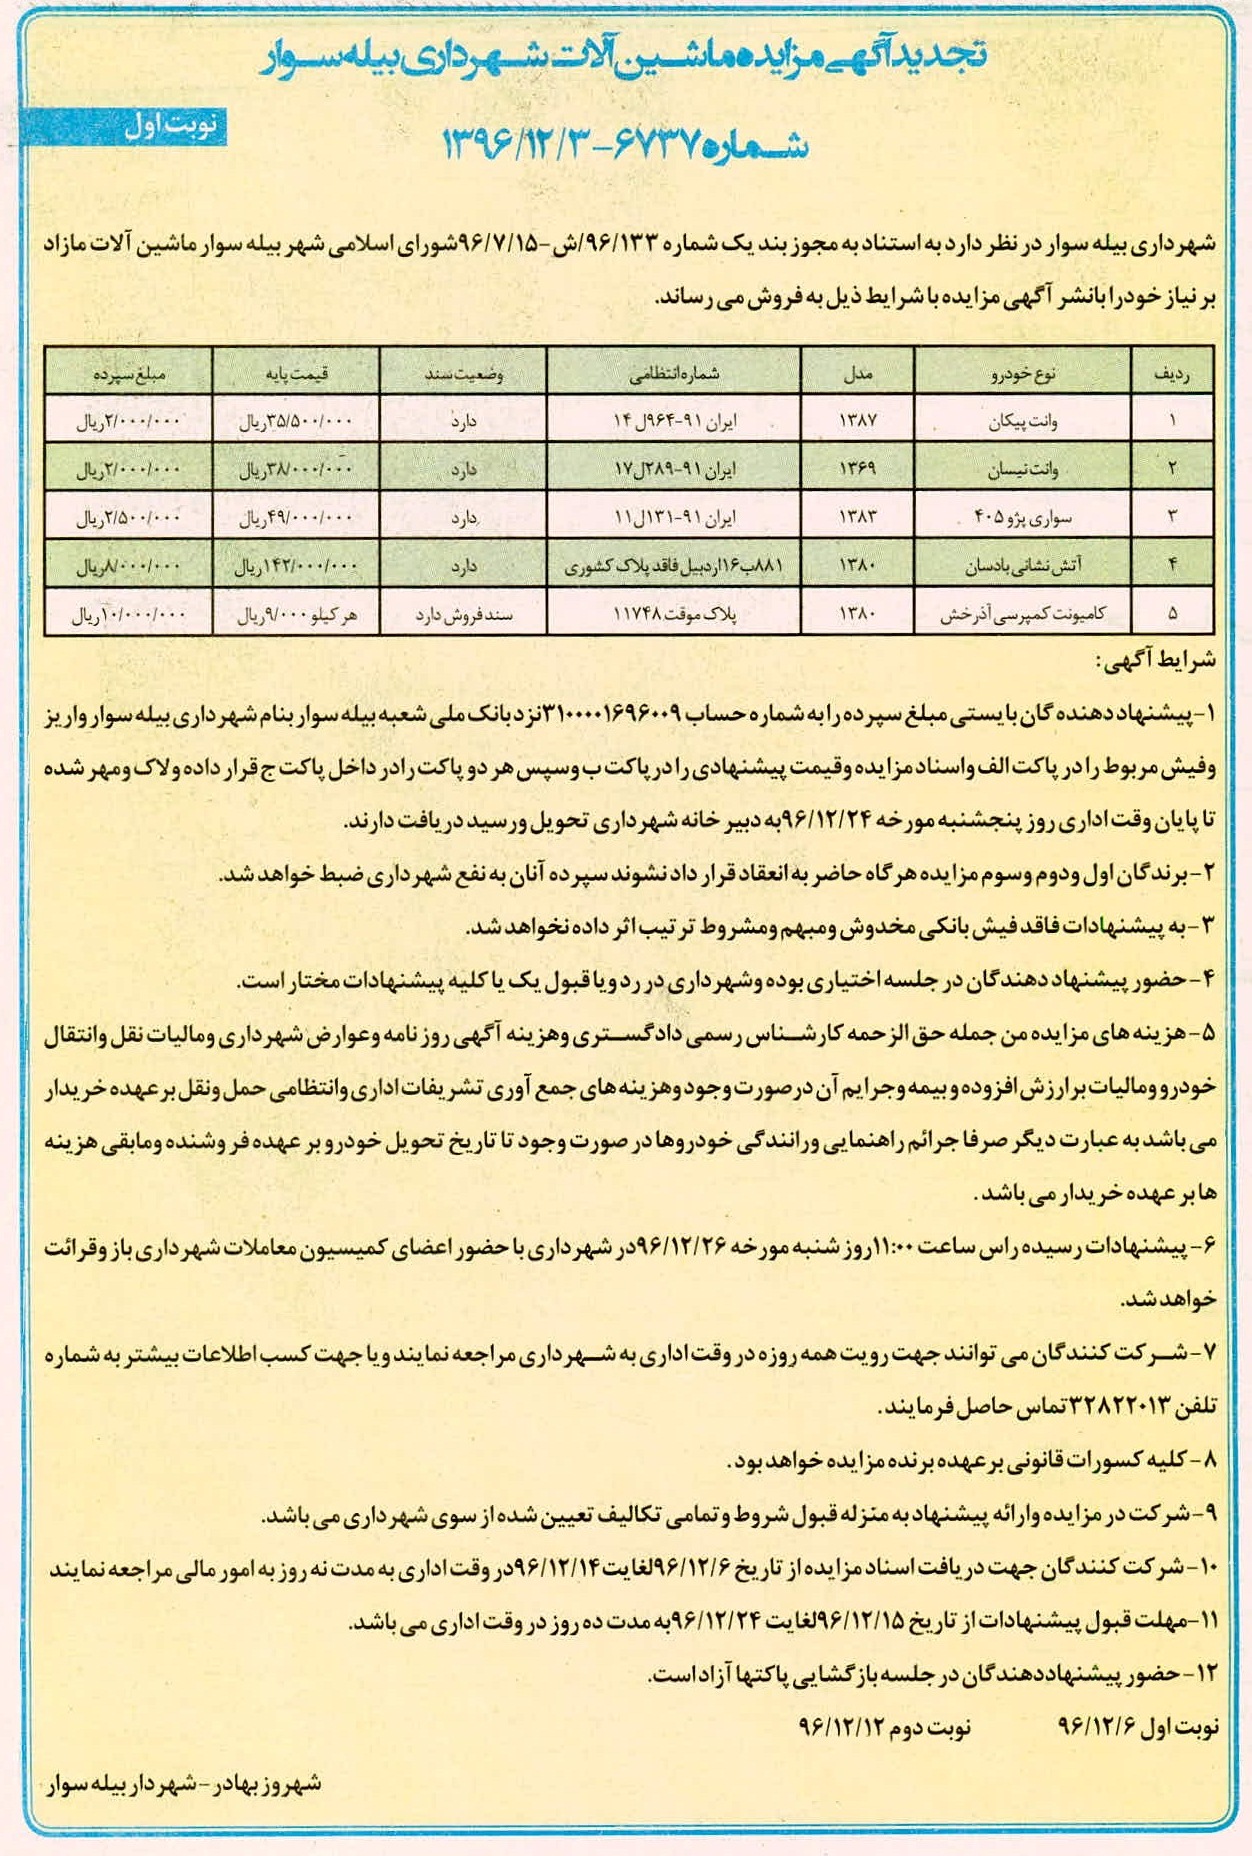 تجدید آگهی مزایده ماشین آلات شهرداری بیله سوار
نوبت اول
شماره ۶۷۳۷-۱۳۹۶/۱۲/۳
شهرداری بیله سوار در نظر دارد به استناد به مجوز بند یک شماره ۹۶/۱۳۳/ش-۹۶/۷/۱۵شورای اسلامی شهر بیله سوار ماشین آلات مازاد
بر نیاز خود را با نشر آگهی مزایده با شرایط ذیل به فروش می رساند.
ردیف نوع خودرو مدل شماره انتظامی وضعیت سند قیمت پایه مبلغ سپرده
۱ وانت پیکان ۱۳۸۷ ایران ۹۱-۹۶۴ل۱۴ دارد ۳۵/۵۰۰/۰۰۰ریال ۲/۰۰۰/۰۰۰ریال
۲ وانت نیسان ۱۳۶۹ ایران ۹۱-۲۸۹ل۱۷ دارد ۳۸/۰۰۰/۰۰۰ریال ۲/۰۰۰/۰۰۰ریال
۳ سواری پژو ۴۰۵ ۱۳۸۳ ایران ۹۱-۱۳۱ل۱۱ دارد ۴۹/۰۰۰/۰۰۰ریال ۲/۵۰۰/۰۰۰ریال
۴ آتش نشانی بادسان ۱۳۸۰ ۸۸۱ب۱۶اردبیل فاقد پلاک کشوری دارد ۱۴۲/۰۰۰/۰۰۰ریال ۸/۰۰۰/۰۰۰ریال
۵ کامیونت کمپرسی آذرخش ۱۳۸۰ پلاک موقت ۱۱۷۴۸ سند فروش دارد هر کیلو ۹/۰۰۰ریال ۱۰/۰۰۰/۰۰۰ریال
شرایط آگهی:
۱-پیشنهاد دهنده گان بایستی مبلغ سپرده را به شماره حساب ۳۱۰۰۰۰۱۶۹۶۰۰۹نزد بانک ملی شعبه بیله سوار بنام شهرداری بیله سوار واریز
وفیش مربوط را در پاکت الف واسناد مزایده وقیمت پیشنهادی را در پاکت ب وسپس هر دو پاکت را در داخل پاکت ج قرار داده ولاک ومهر شده
تا پایان وقت اداری روز پنجشنبه مورخه ۹۶/۱۲/۲۴به دبیر خانه شهرداری تحویل ورسید دریافت دارند.
۲-برندگان اول ودوم وسوم مزایده هر گاه حاضر به انعقاد قرار داد نشوند سپرده آنان به نفع شهرداری ضبط خواهد شد.
۳-به پیشنهادات فاقد فیش بانکی مخدوش ومبهم ومشروط ترتیب اثر داده نخواهد شد.
۴-حضور پیشنهاد دهندگان در جلسه اختیاری بوده وشهرداری در رد ویا قبول یک یا کلیه پیشنهادات مختار است.
۵-هزینه های مزایده من جمله حق الزحمه کارشناس رسمی دادگستری وهزینه آگهی روزنامه وعوارض شهرداری ومالیات نقل وانتقال
خودرو ومالیات بر ارزش افزوده و بیمه وجرایم آن درصورت وجود وهزینه های جمع آوری تشریفات اداری وانتظامی حمل ونقل بر عهده خریدار
می باشد به عبارت دیگر صرفا جرائم راهنمایی ورانندگی خودروها در صورت وجود تا تاریخ تحویل خودرو بر عهده فروشنده ومابقی هزینه
ها بر عهده خریدار می باشد.
۶-پیشنهادات رسیده راس ساعت ۱۱:۰۰روز شنبه مورخه ۹۶/۱۲/۲۶در شهرداری با حضور اعضای کمیسیون معاملات شهرداری باز وقرائت
خواهد شد.
۷-شرکت کنندگان می توانند جهت رویت همه روزه در وقت اداری به شهرداری مراجعه نمایند ویا جهت کسب اطلاعات بیشتر به شماره
تلفن ۳۲۸۲۲۰۱۳تماس حاصل فرمایند.
۸-کلیه کسورات قانونی بر عهده برنده مزایده خواهد بود.
۹-شرکت در مزایده وارائه پیشنهاد به منزله قبول شروط و تمامی تکالیف تعیین شده از سوی شهرداری می باشد.
۱۰-شرکت کنندگان جهت دریافت اسناد مزایده از تاریخ ۹۶/۱۲/۶لغایت ۹۶/۱۲/۱۴در وقت اداری به مدت نه روز به امور مالی مراجعه نمایند
۱۱-مهلت قبول پیشنهادات از تاریخ ۹۶/۱۲/۱۵لغایت ۹۶/۱۲/۲۴به مدت ده روز در وقت اداری می باشد.
۱۲-حضور پیشنهاددهندگان در جلسه بازگشایی پاکتها آزاد است.
نوبت اول ۹۶/۱۲/۶ نوبت دوم ۹۶/۱۲/۱۲
شهروز بهادر-شهردار بیله سوار